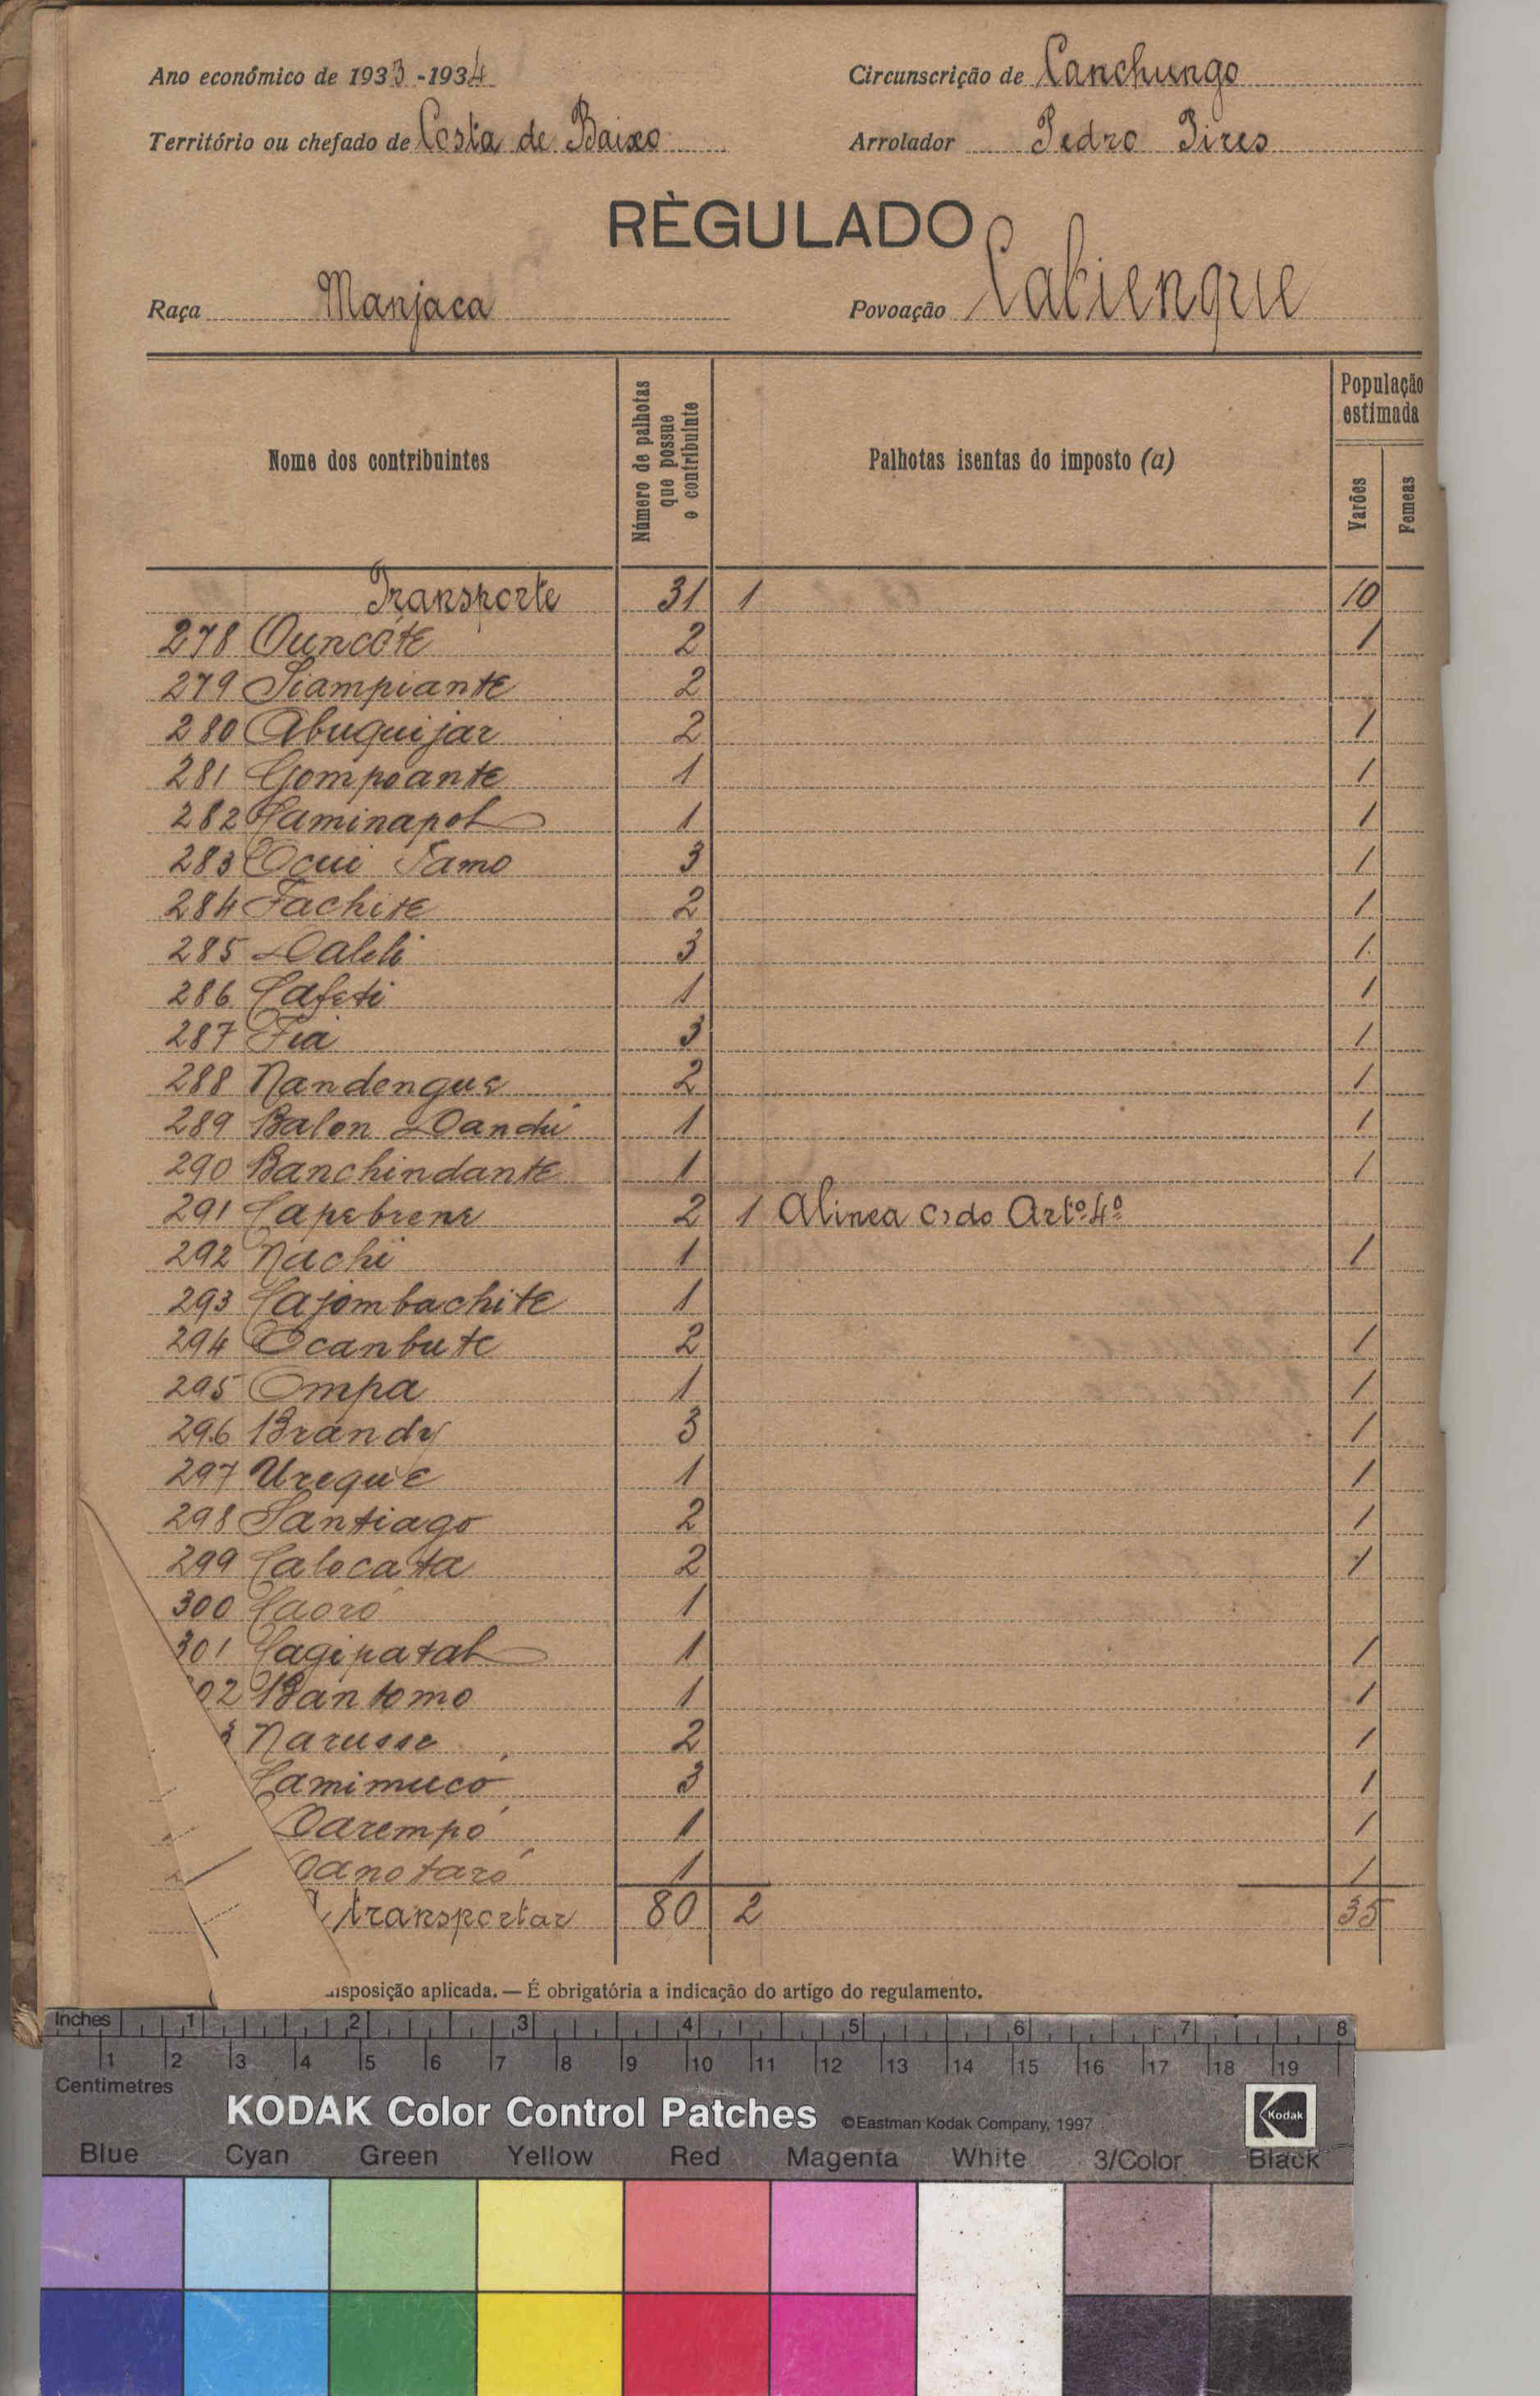 Ano económico de 1933-1934 Circunscrição de Canchungo
Território ou chefado de Costa de Baixo Arrolador Pedro Pires
RÈGULADO
Raça Manjaca Povoação Cabienque
Nome dos contribuintes Número de palhotas que possue o contribuinte Palhotas isentas do imposto (a) População estimada Varões Femeas
Transporte 31 1 10
278 Ouncóte 2 1
279 Siampiante 2
280 Abuquijar 2 1
281 Gompoante 1 1
282 Caminapol 1 1
283 Ocui Samo 3 1
284 Fachite 2 1
285 Dalili 3 1
286 Cafeti 1 1
287 Fia 3 1
288 Nandengue 2 1
289 Balon Dandú 1 1
290 Banchindante 1 1
291 Capebrene 2 1 Alinea c) do Artº. 4º
292 Nachi 1 1
293 Cajombachite 1
294 Ocanbute 2 1
295 Ompa 1 1
296 Brandy 3 1
297 Ureque 1 1
298 Santiago 2 1
299 Calocata 2 1
300 Caoró 1
301 Cagipatal 1 1
02 Bantomo 1 1
3 Narusse 2 1
Camimucó 3 1
Darempó 1 1
anotaró 1 1
transportar 80 2 35
isposição aplicada. — É obrigatória a indicação do artigo do regulamento.
Inches 1 2 3 4 5 6 7 8
1 2 3 4 5 6 7 8 9 10 11 12 13 14 15 16 17 18 19
Centimetres
KODAK Color Control Patches ©Eastman Kodak Company, 1997 Kodak
Blue Cyan Green Yellow Red Magenta White 3/Color Black